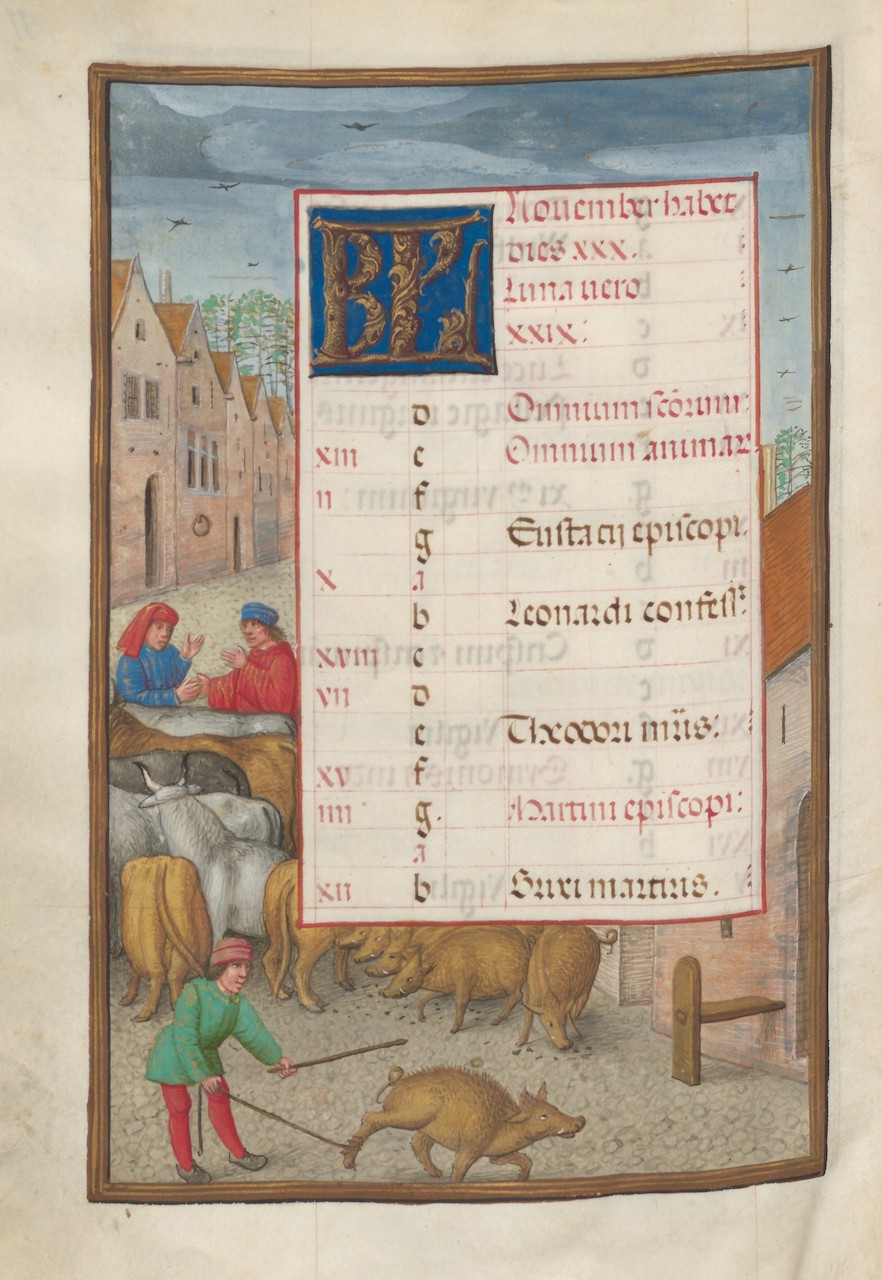 KL Nouember habet
dies xxx.
Luna uero
xxix:
d Omnium scõrum:
xiii e Omnium animar
ii f
g Eustacij episcopi.
x a
b Leonardi confess:
xviii c
vii d
e Theodori mris:
xv f
iiii g. Martini episcopi:
a
xii b Brixi martiris.